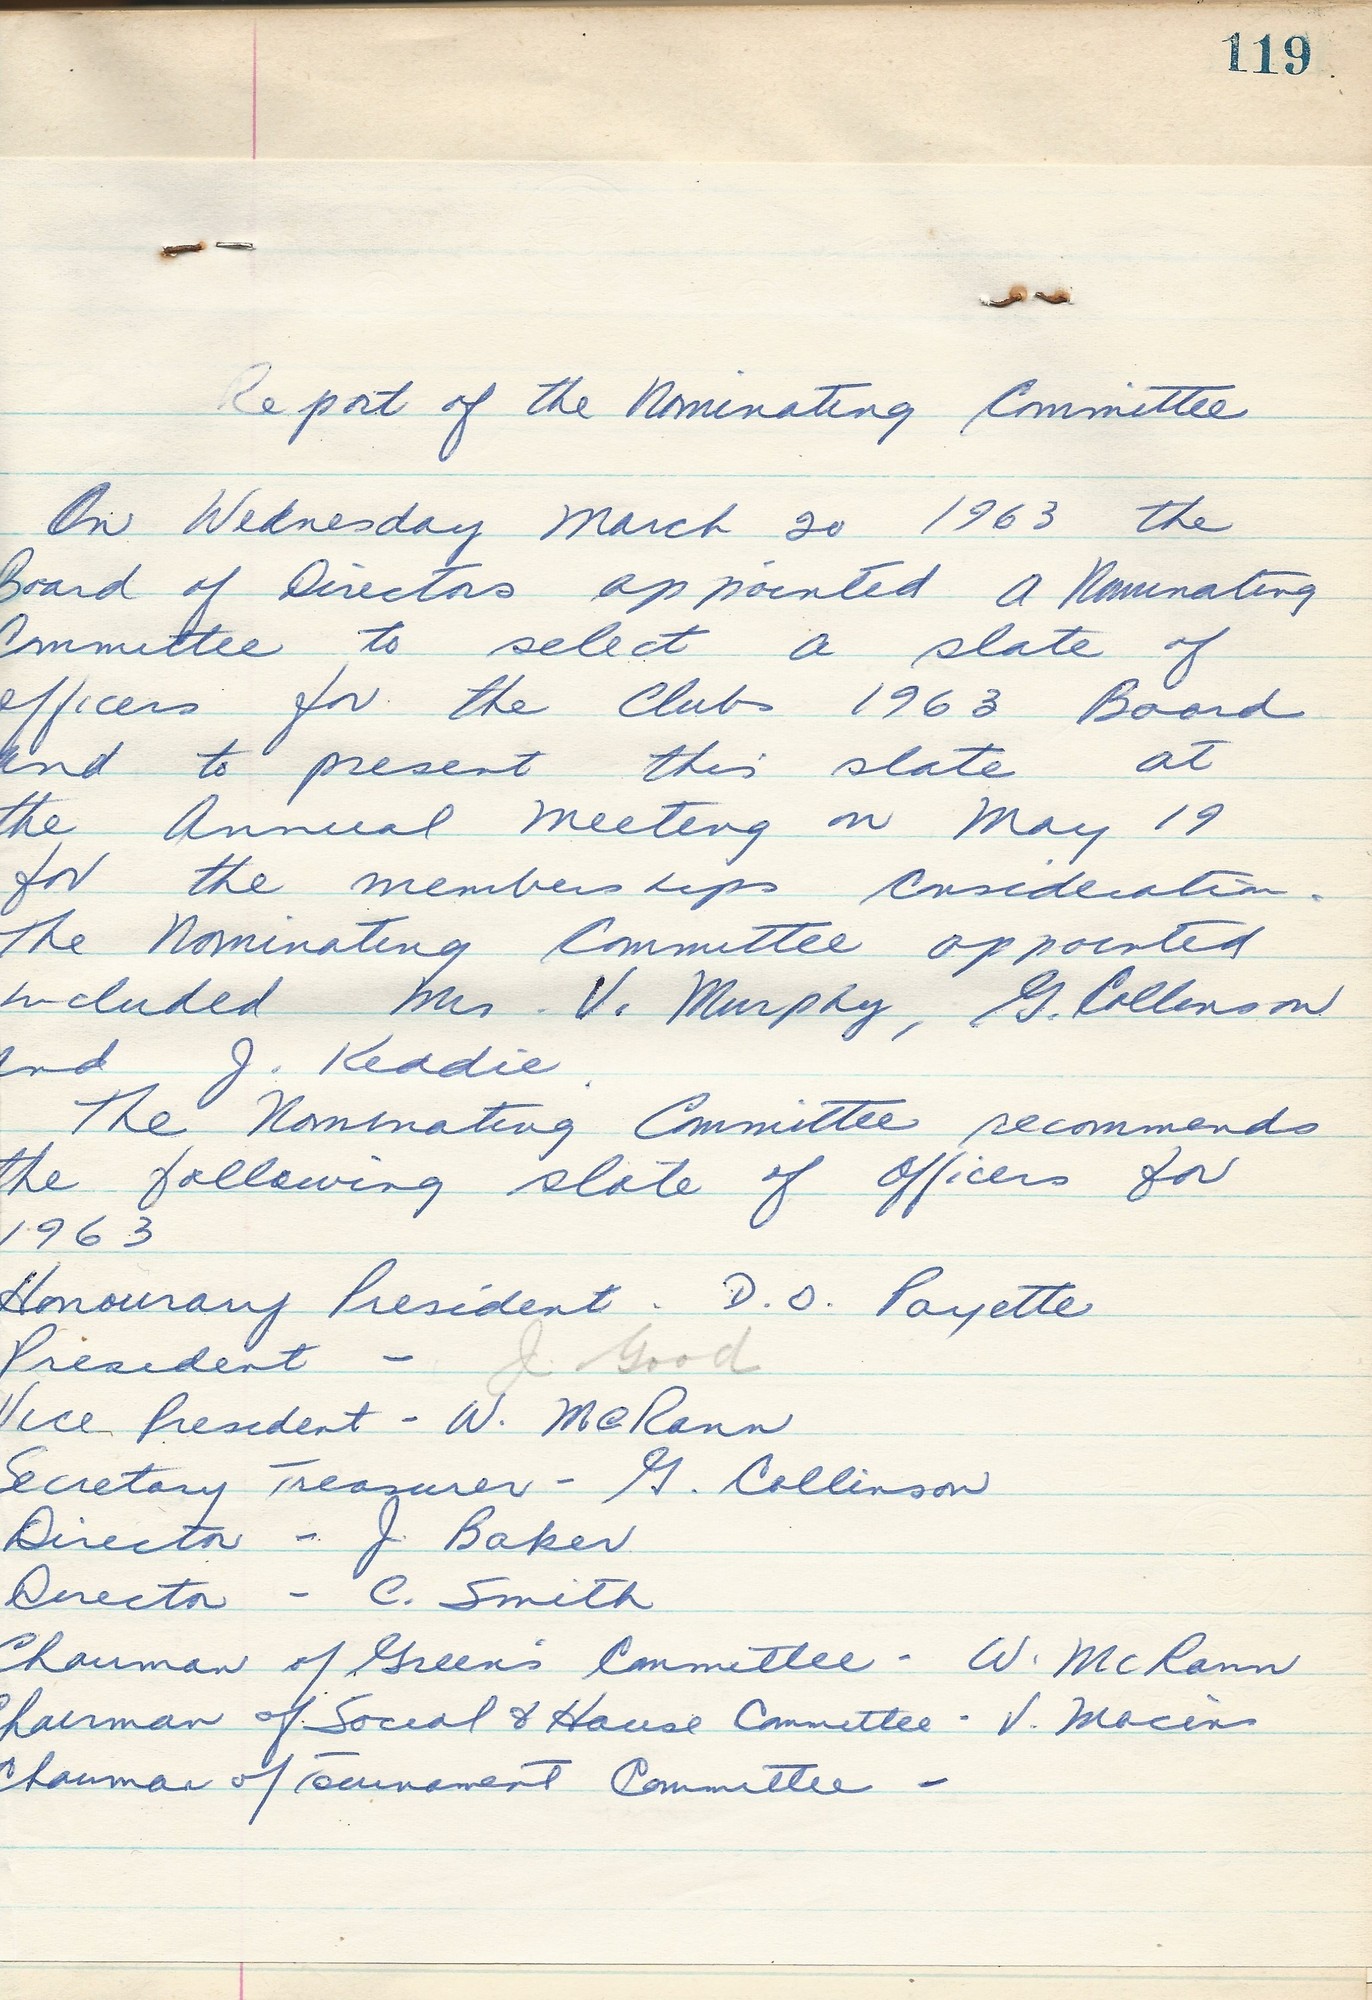 119
Report of the Nominating Committee
On Wednesday March 20 1963 the
Board of Directors appointed a Nominating
Committee to select a slate of
officers for the Clubs 1963 Board
and to present this slate at
the Annual Meeting on May 19
for the memberships consideration.
The Nominating Committee appointed
included Mrs. V. Murphy, G. Collinson
and J. Keadie.
The Nominating Committee recommends
the following slate of officers for
1963
Honourary President - D.O. Payette
President - J. Good
Vice President - W. McRann
Secretary Treasurer - G. Collinson
Director - J Baker
Director - C. Smith
Chairman of Green's Committee - W. McRann
Chairman of Social & House Committee - V.
Chairman of Tournament Committee -